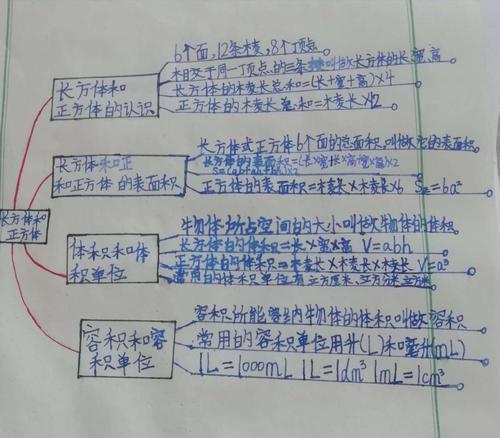 6个面,12条棱,8个顶点。
相交于同一顶点的三条棱叫做长方体的长宽高
长方体的棱长总和=(长+宽+高)×4
正方体的棱长总和=棱长×12。
长方体和
正方体的认识
长方体或正方体6个面的总面积,叫做它的表面积。
长方体的表面积=(长×宽+长×高+宽×高)×2
正方体的表面积=棱长×棱长×6 S=6a²
长方体和正
和正方体的表面积
长方体和
正方体
物体所占空间的大小叫做物体的体积。
长方体的体积=长×宽×高 V=abh
正方体的体积=棱长×棱长×棱长 V=a³
常用的体积单位有立方厘米,立方分米,立方米
体积和体
积单位
容积所能容纳物体的体积叫做容积
常用的容积单位用升(L)和毫升(mL)
1L=1000mL 1L=1dm³ 1mL=1cm³
容积和容
积单位